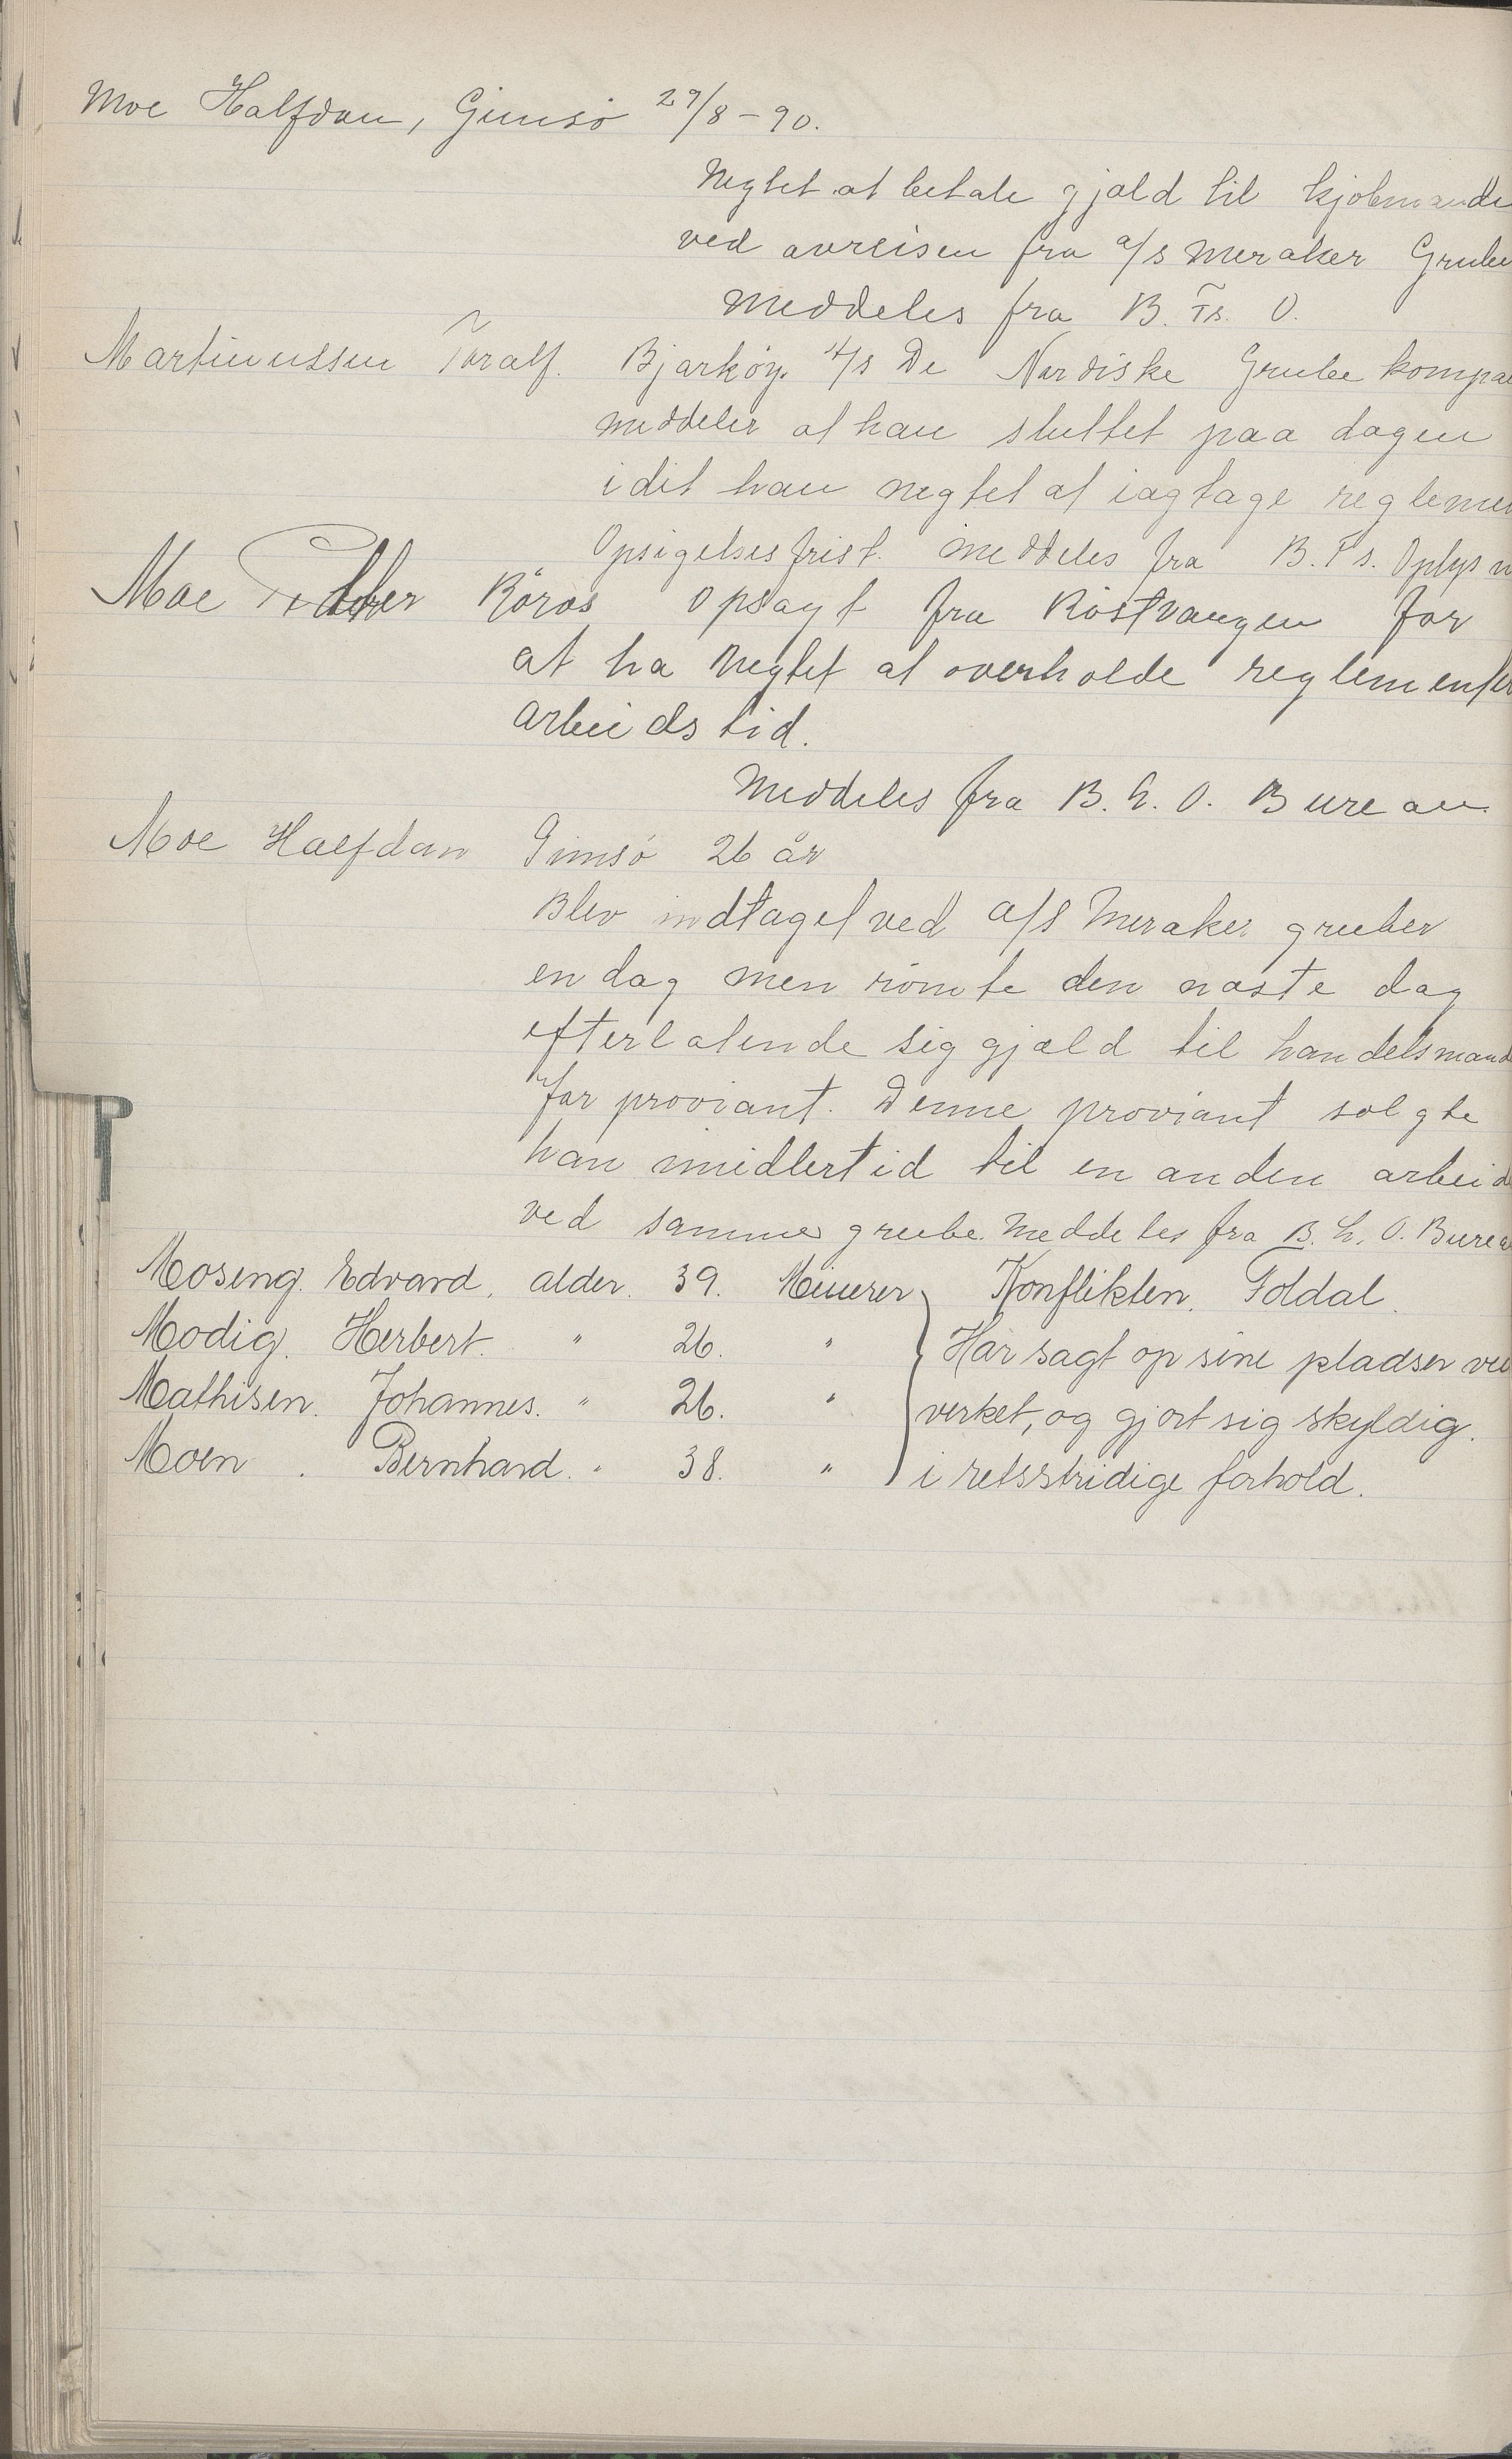 Moe Halfdan, Gimsö 29/8-90.
Negtet at betale gjæld til kjöbmande
ved avreisen fra a/s Meraker Grube
Meddeles fra B. Is. O.
Martinussen Toralf. Bjarköy. A/s De Nordiske Grube kompa
meddeler at han sluttet paa dagen
idet han negtet at iagtage reglemen
Opsigelsesfrist. Meddeles fra B. I s. Oplysn
Moe Peder Röros Opsagt fra Röstvangen for
at ha negtet at overholde reglementer
arbeidstid.
Meddeles fra B. h. O. Bureau
Moe Halfdan Gimsö 26 år
Blev indtaget ved A/S Meraker gruber
en dag men römte den næste dag
efterlatende sig gjæld til handelsmand
for proviant. Denne proviant solgte
han imidlertid til en anden arbeid
ved samme grube. Meddeles fra B. h. O. Burea
Moseng. Edvard. alder. 39. Minerer Konflikten. Foldal.
Modig. Herbert. " 26. " Har sagt op sine pladser ved
Mathisen. Johannes. " 26. " verket, og gjort sig skyldig.
Moen . Bernhard. " 38. " i retsstridige forhold.